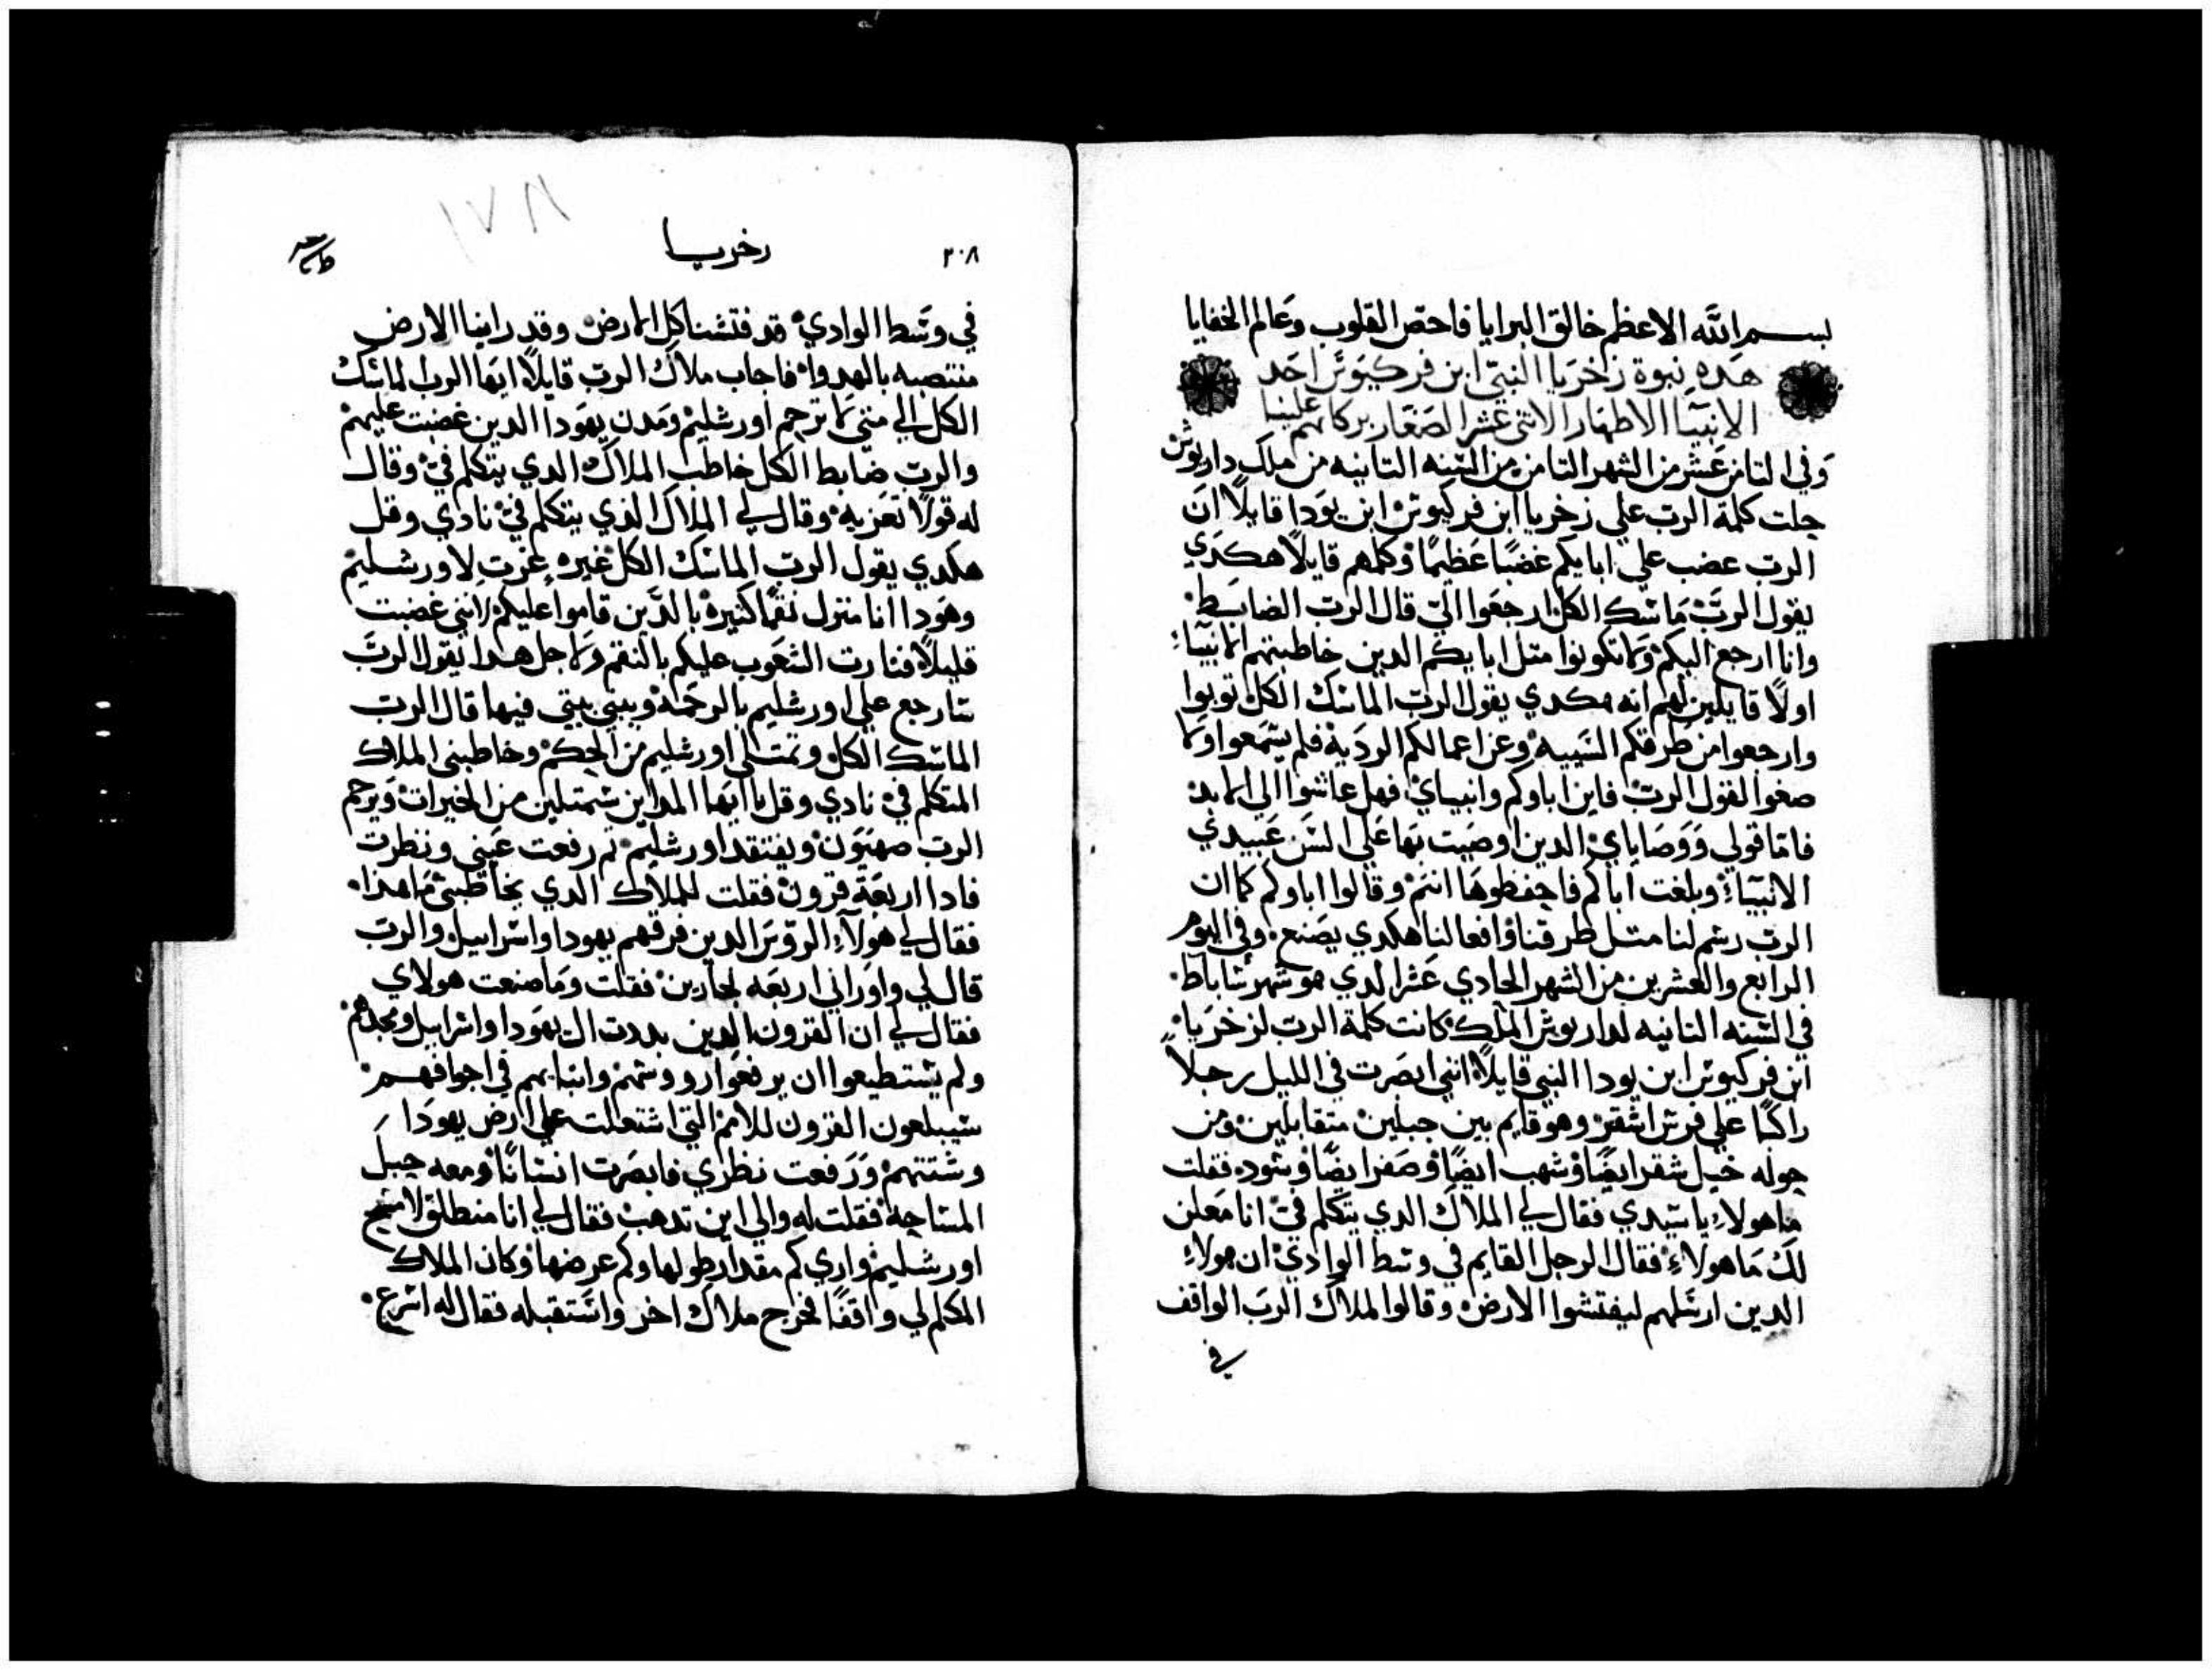 بسم الله الاعظم خالق البرايا فاحص القلوب وعالم الخفايا
هده نبوة زاخريا النبي ابن فركيوس احد
الانبيا الاطهار الاتني عشر الصغار بركاتهم علينا
وفي التامن عشر من الشهر التامن من السنه التانيه من ملك داريوس
حلت كلمة الرب علي زخريا ابن فركيوس ابن يودا قايلا ان
الرب عضب علي ابايكم غضبا عظيما وكلهم قايلا هكدي
يقول الرب ماسك الكل ارجعوا الي قال الرب الضابط
وانا ارجع اليكم ولا تكونوا متل ابايكم الدين خاطبتهم الانبياء
اولا قايلين لهم انه هكدي يقول الرب الماسك الكل توبوا
وارجعوا من طرقكم السييه وعن اعمالكم الرديه فلم يسمعوا ولا
صغوا لقول الرب فاين اباوكم وانبياي فهل عاشوا الي الابد
فاما قولي ووصاياي الدين اوصيت بها علي السن عبيدي
الانبياء وبلغت اباكم فاحفظوها انتم وقالوا اباوكم كما ان
الرب رسم لنا متل طرقنا وافعالنا هكدي يصنع وفي اليوم
الرابع والعشرين من الشهر الحادي عشر الدي هو شهر شاباط
في السنه التانيه لداريوش الملك كانت كلمة الرب لزخريا
ابن فركيوس ابن يودا النبي قايلا انني ابصرت في الليل رجلا
راكبا علي فرس اشقر وهو قايم بين جبلين متقابلين ومن
حوله خيل شقر ايضا وشهب ايضا وصفر ايضا وسود فقلت
ما هولاء يا سيدي فقال لي الملاك الدي يتكلم في انا معلن
لك ما هولاء فقال الرجل القايم في وسط الوادي ان هولاء
الدين ارسلهم ليفتشوا الارض وقالوا لملاك الرب الواقف
في
٢٠٨
زخريا
١٧٨
في وسط الوادي قد فتشنا كل الارض وقد راينا الارض
منتصبه بالهدوا فاجاب ملاك الرب قايلا ايها الرب لماسك
الكل الي متي لا ترحم اورشليم ومدن يهودا الدين غضبت عليهم
والرب ضابط الكل خاطب الملاك الدي يتكلم في وقال
له قولا تعزيه وقال لي الملاك الذي يتكلم في نادي وقل
هكدي يقول الرب الماسك الكل غيره غرت لاورشليم
وهودا انا منزل نقما كتيره بالدين قاموا عليكم انني غضبت
قليلا فتارت الشعوب عليكم بالنقم ولاجل هدا يقول الرب
سارجع علي اورشليم بالرحمة ويبني بيتي فيها قال الرب
الماسك الكل وتمتلي اورشليم من الحكم وخاطبني الملاك
المتكلم في نادي وقل يا ايها المداين ستمتلين من الخيرات ويرحم
الرب صهيون ويفتقد اورشليم تم رفعت عيني ونظرت
فادا اربعة قرون فقلت للملاك الدي يخاطبني ما هدا
فقال لي هولاء الروس الدين فرقهم يهودا واسراييل والرب
قال لي واوراني اربعه نجارين فقلت وما صنعت هولاي
فقال لي ان القرون الدين بددت ال يهودا واسراييل ومجدهم
ولم يستطيعوا ان يرفعوا رووسهم وانيابهم في اجوافهم
سيبلعون القرون للامم التي اشتعلت علي ارض يهودا
وشتتهم ورفعت نظري فابصرت انسانا ومعه حبل
المساحه فقلت له والي اين تدهب فقال لي انا منطلق لامسح
اورشليم واري كم مقدار طولها وكم عرضها وكان الملاك
المكلم لي واقفا فخرج ملاك اخر واستقبله فقال له اسرع